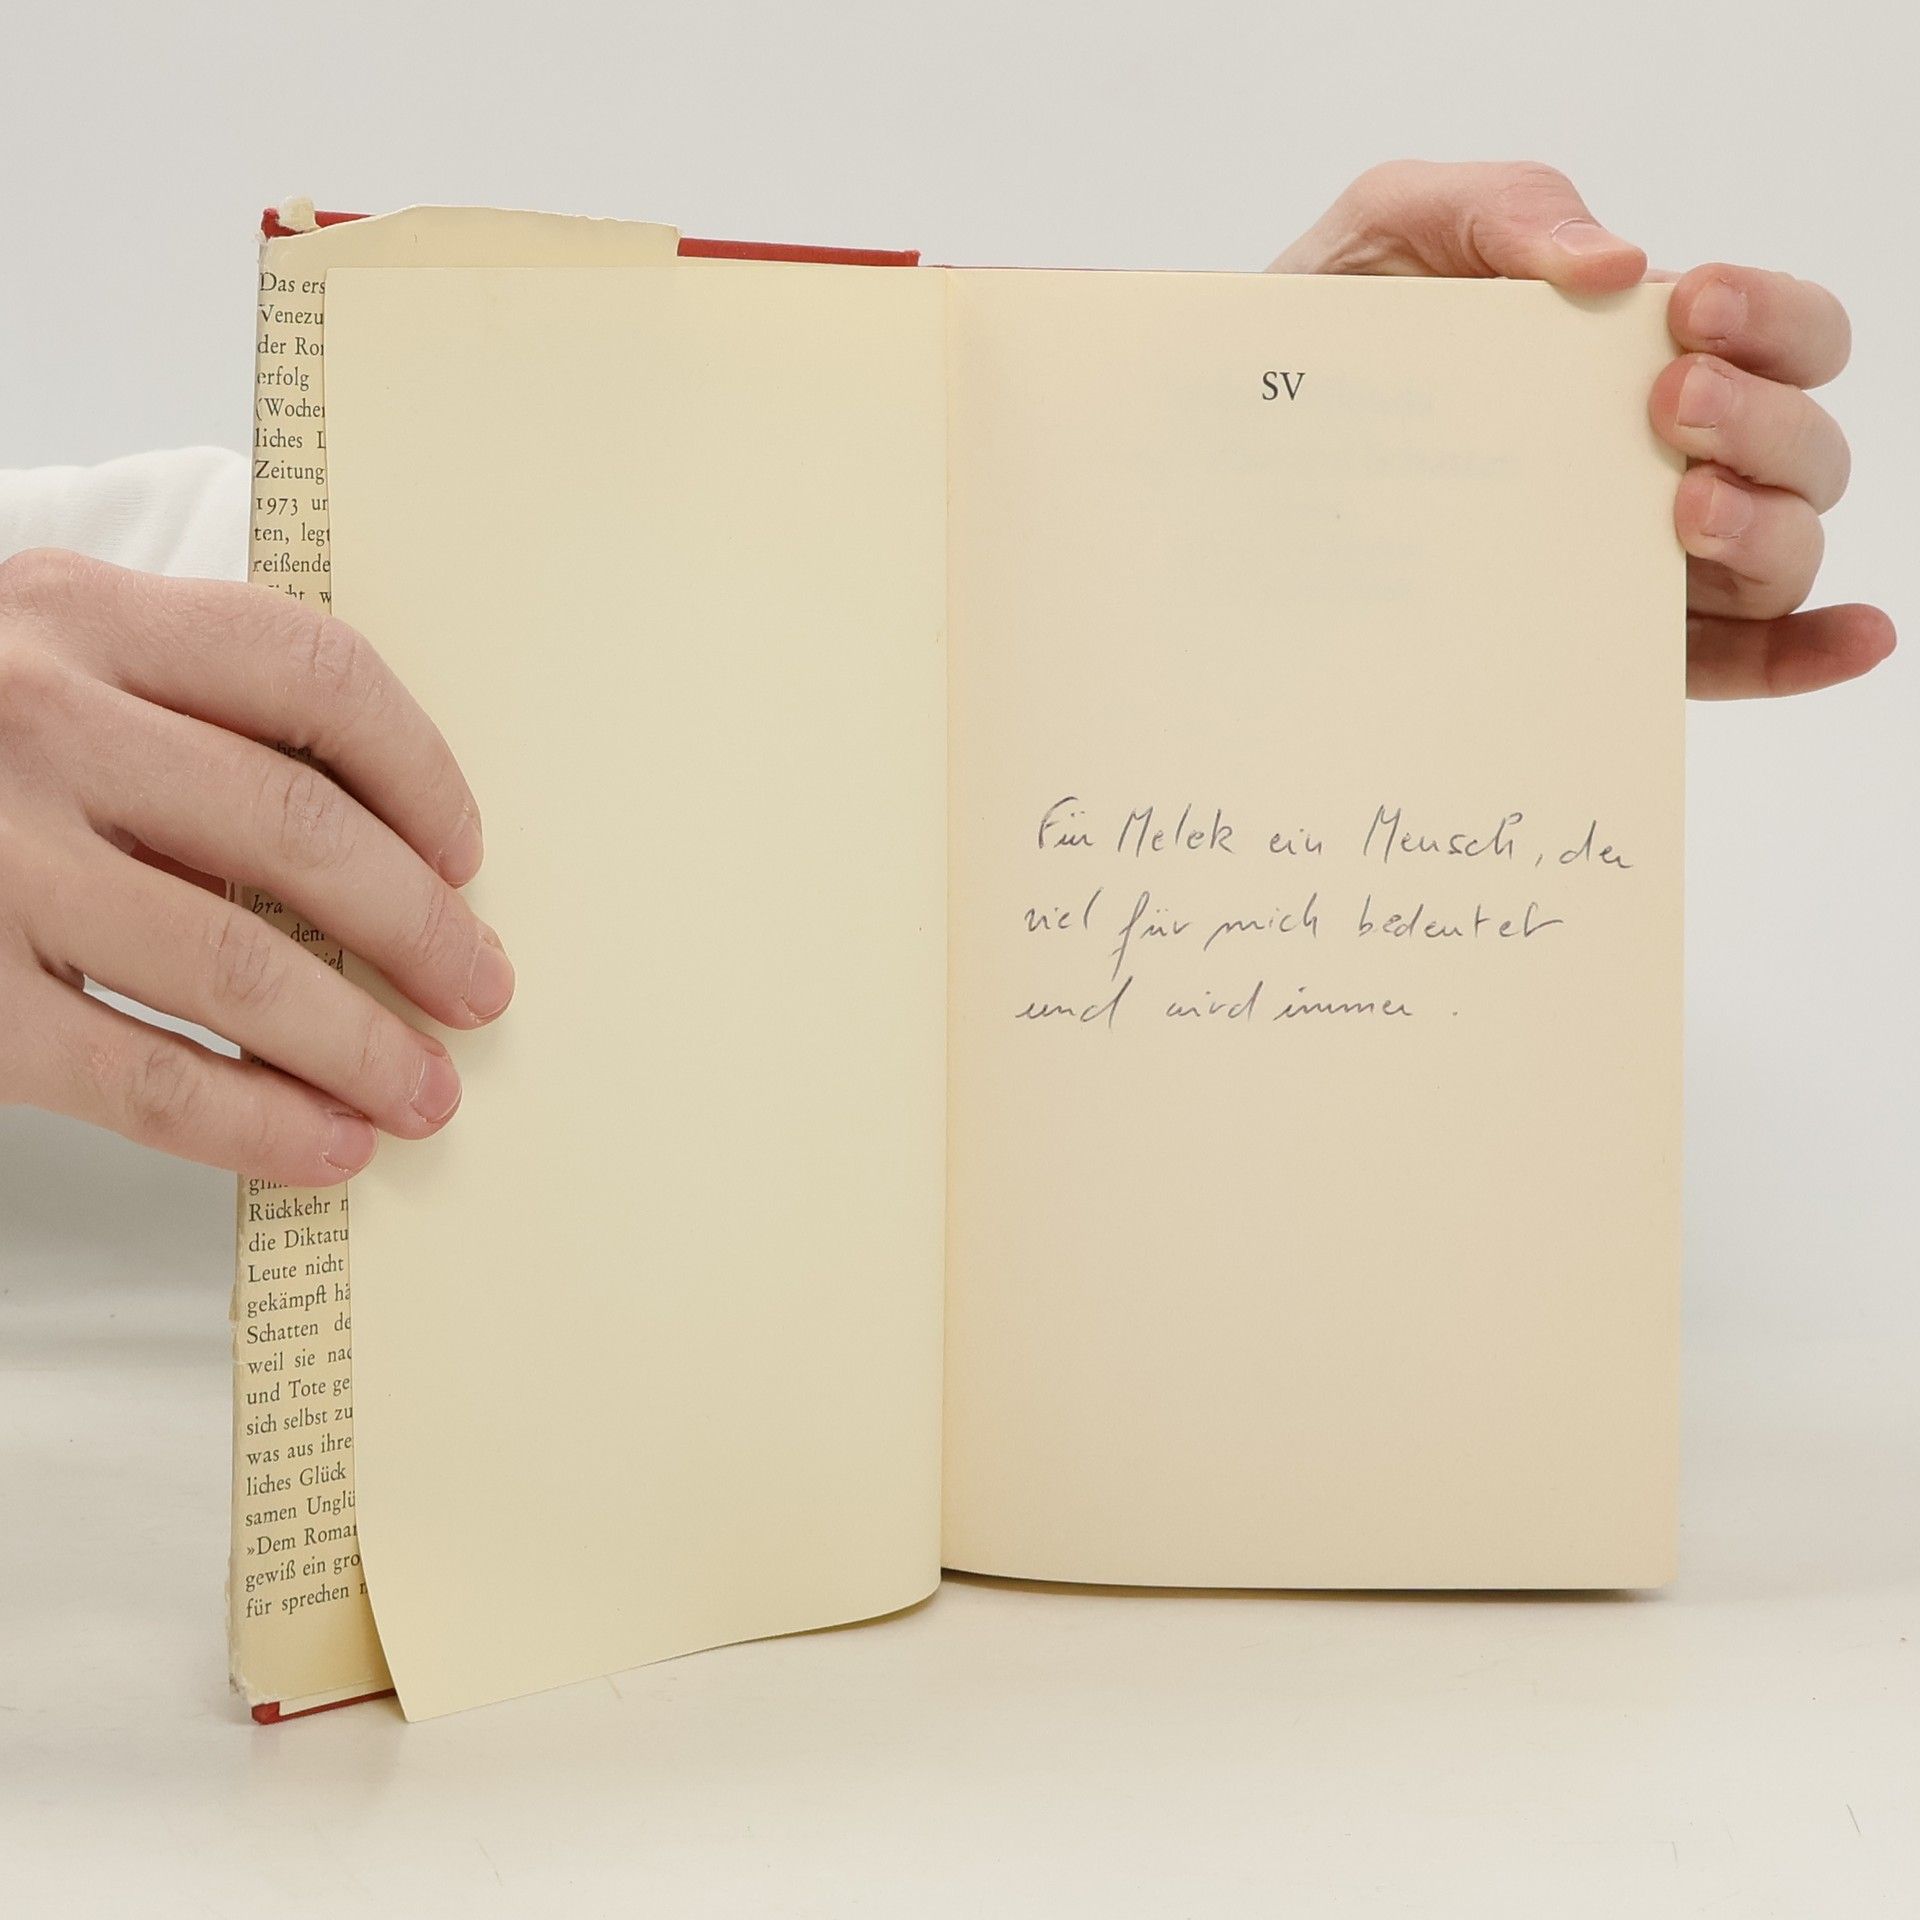 Das ers
Venezu
der Ror
erfolg
(Wochen
liches L
Zeitung
1973 un
ten, legt
reißende
icht w
bra
dem
Rückkehr n
die Diktatu
Leute nicht
gekämpft hä
Schatten de
weil sie nac
und Tote ge
sich selbst zu
was aus ihre
liches Glück
samen Unglü
»Dem Roman
gewiß ein gro
für sprechen n
SV
Für Melek ein Mensch, der
viel für mich bedeutet
und wird immer .